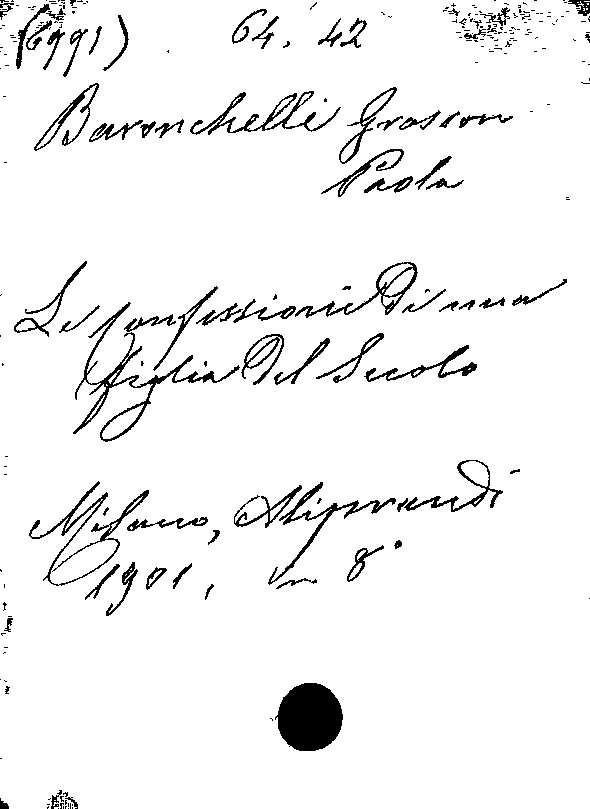 (6991) 64. 42
Baronchelli Grosson
Paola
Le confessioni di una
figlia del Secolo
Milano, Aliprandi
1901, in 8°